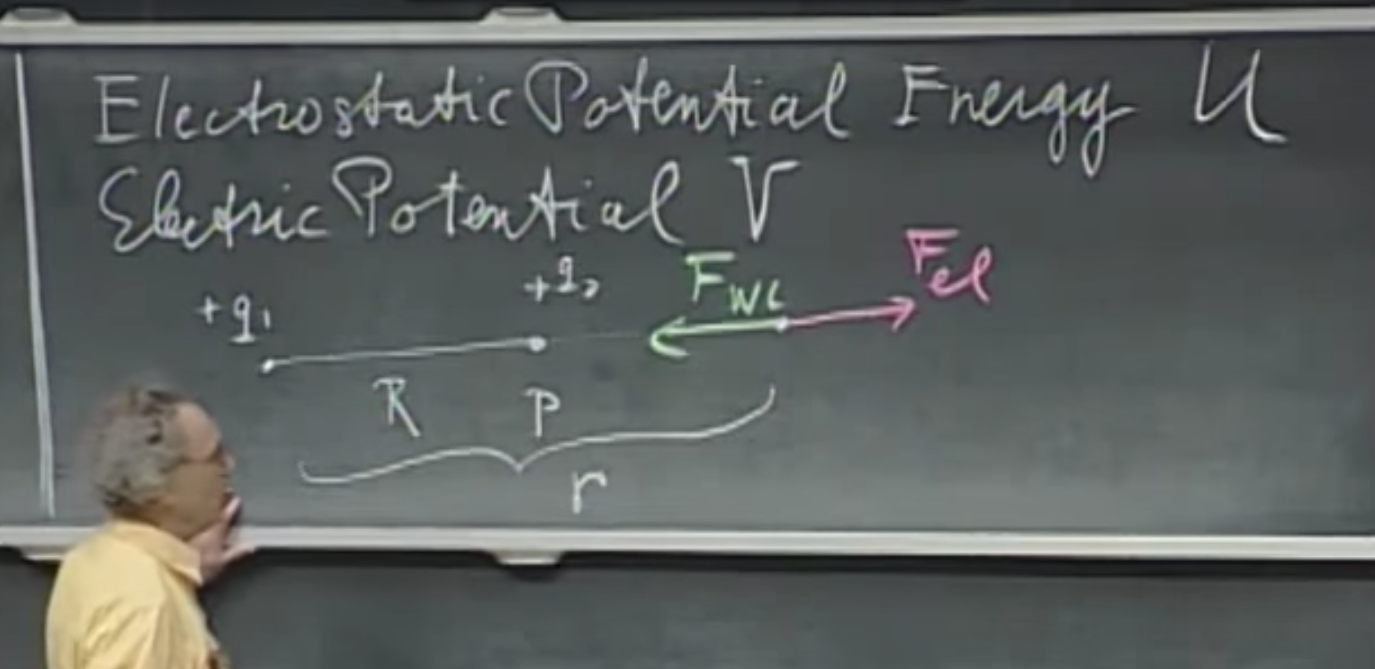 Electrostatic Potential Energy U
Electric Potential V
+q₁ +q₂ F_WL F_el
R P
r